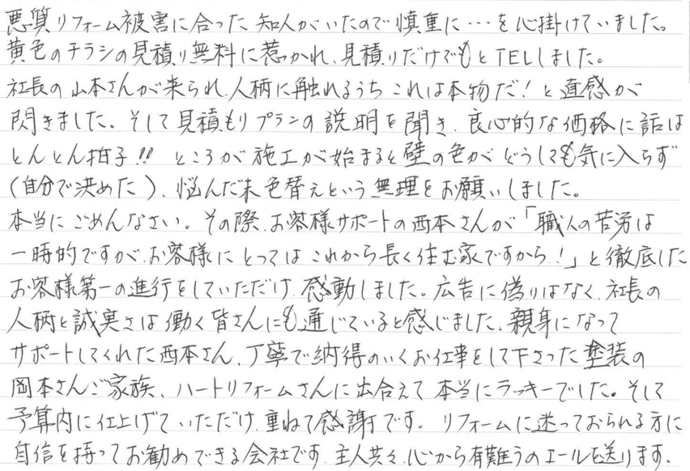 悪質リフォーム被害に合った知人がいたので慎重に…を心掛けていました。
黄色のチラシの見積り無料に惹かれ、見積りだけでもとTELしました。
社長の山本さんが来られ、人柄に触れるうちこれは本物だ!と直感が
閃きました。そして見積もりプランの説明を聞き、良心的な価格に話は
とんとん拍子!!ところが施工が始まると壁の色がどうしても気に入らず
(自分で決めた)、悩んだ末色替えという無理をお願いしました。
本当にごめんなさい。その際、お客様サポートの西本さんが「職人の苦労は
一時的ですが、お客様にとってはこれから長く住む家ですから!」と徹底した
お客様第一の進行をしていただけ感動しました。広告に偽りはなく、社長の
人柄と誠実さは働く皆さんにも通じていると感じました。親身になって
サポートしてくれた西本さん、丁寧で納得のいくお仕事をして下さった塗装の
岡本さんご家族、ハートリフォームさんに出合えて本当にラッキーでした。そして
予算内に仕上げていただけ、重ねて感謝です。リフォームに迷っておられる方に
自信を持ってお勧めできる会社です。主人共々、心から有難うのエールを送ります。